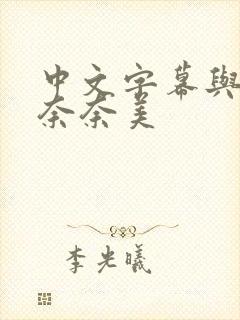 中文字幕與
奈奈美
李光曦